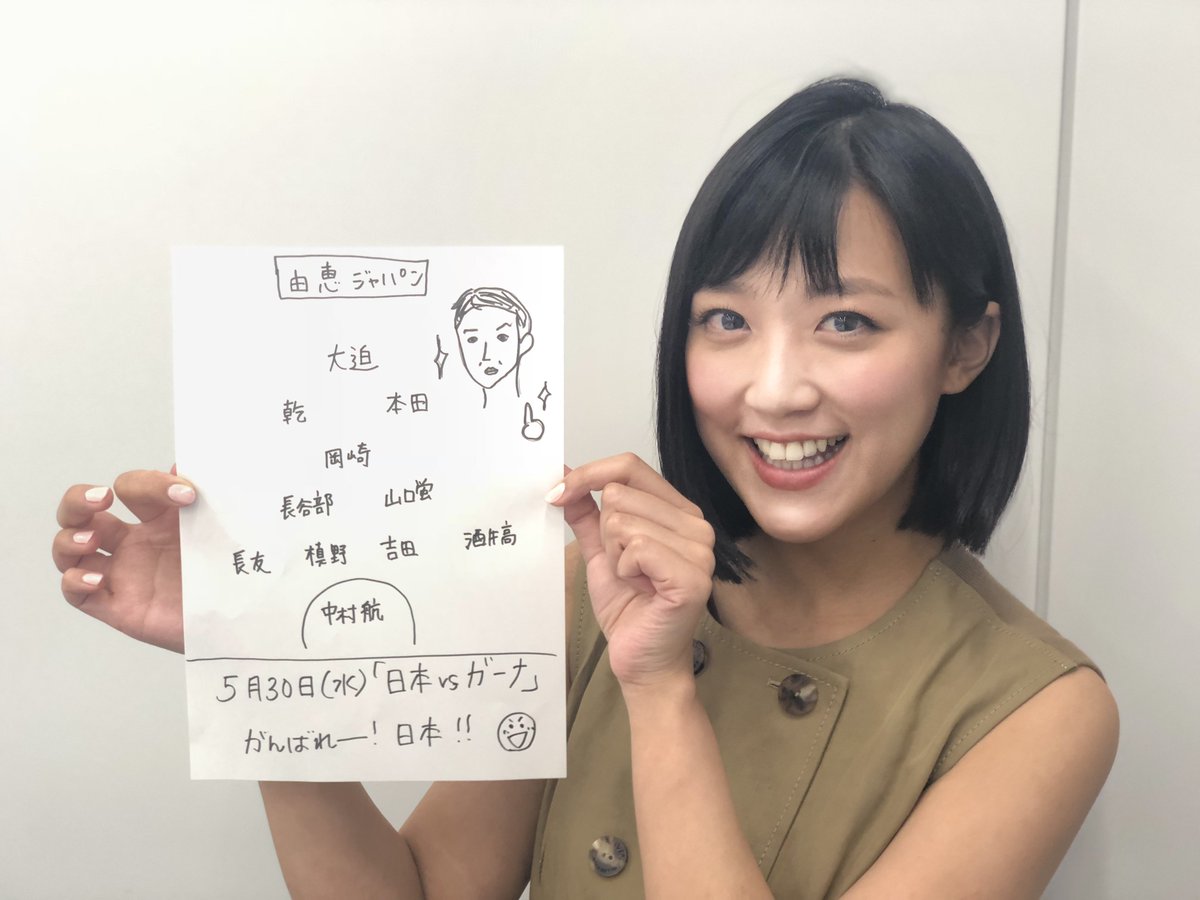 由恵ジャパン
大迫
乾 本田
岡崎
長谷部 山口蛍
長友 槙野 吉田 酒井高
中村航
5月30日(水)「日本vsガーナ」
がんばれー!日本!!